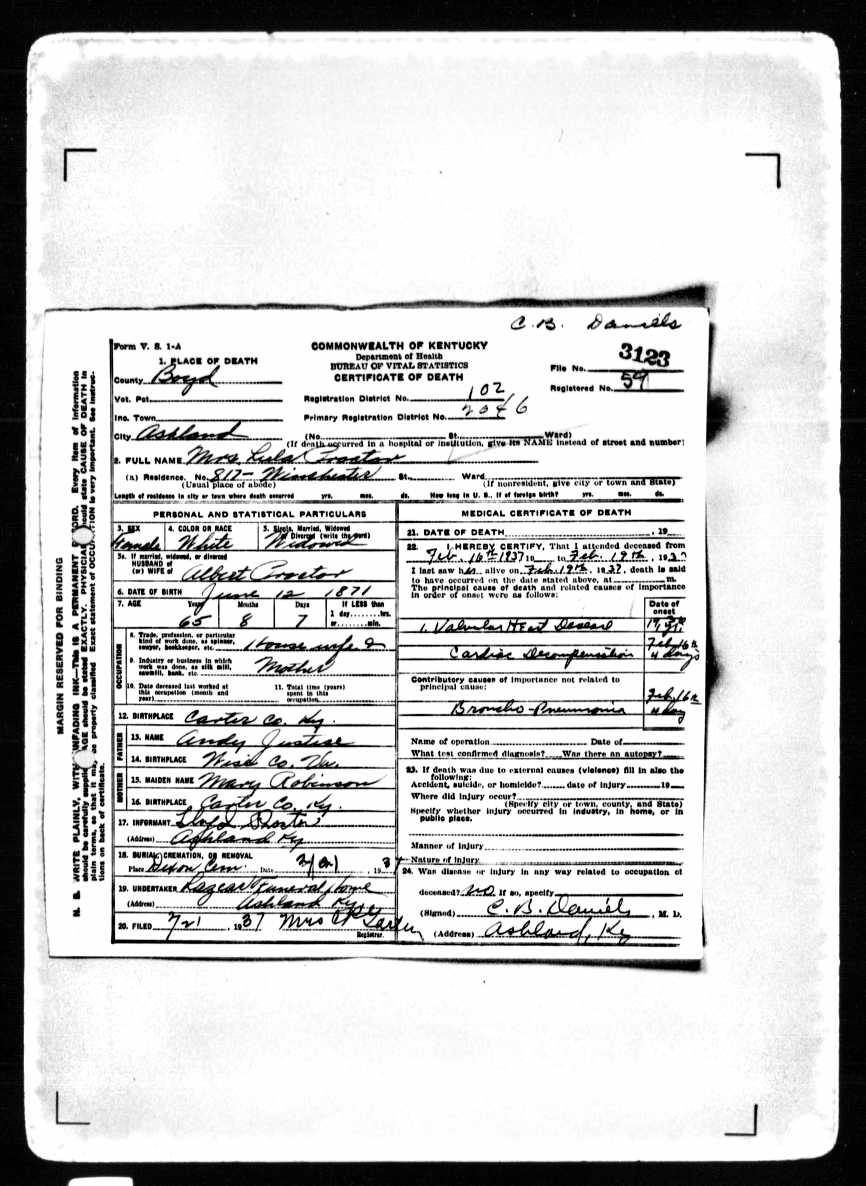 C. B. Daniels
Form V. S. 1-A
COMMONWEALTH OF KENTUCKY
Department of Health
BUREAU OF VITAL STATISTICS
CERTIFICATE OF DEATH
File No. 3123
Registered No. 59
1. PLACE OF DEATH
County Boyd
Vot. Pct.
Inc. Town
City Ashland
Registration District No. 102
Primary Registration District No. 2046
(No. St. Ward)
(If death occurred in a hospital or institution, give its NAME instead of street and number)
2. FULL NAME Mrs. Lula Proctor
(a) Residence. No. 817- Winchester St., Ward.
(Usual place of abode) (If nonresident, give city or town and State)
Length of residence in city or town where death occurred yrs. mos. ds. How long in U. S., if of foreign birth? yrs. mos. ds.
PERSONAL AND STATISTICAL PARTICULARS
3. SEX Female
4. COLOR OR RACE White
5. Single, Married, Widowed or Divorced (write the word) Widowed
5a. If married, widowed, or divorced
HUSBAND of
(or) WIFE of Albert Proctor
6. DATE OF BIRTH June 12 1871
7. AGE Years 65 Months 8 Days 7 If LESS than 1 day hrs. or min.
OCCUPATION
8. Trade, profession, or particular kind of work done, as spinner, sawyer, bookkeeper, etc. House wife &
9. Industry or business in which work was done, as silk mill, sawmill, bank, etc. Mother
10. Date deceased last worked at this occupation (month and year)
11. Total time (years) spent in this occupation
12. BIRTHPLACE Carter Co. Ky.
FATHER
13. NAME Andy Justice
14. BIRTHPLACE Wise Co. Va.
MOTHER
15. MAIDEN NAME Mary Robinson
16. BIRTHPLACE Carter Co. Ky.
17. INFORMANT
(Address) Ashland Ky
18. BURIAL, CREMATION, OR REMOVAL
Place Dixon Cem. Date 2/21, 1937
19. UNDERTAKER Funeral Home
(Address) Ashland Ky
20. FILED 721, 1937 Mrs
Registrar.
MEDICAL CERTIFICATE OF DEATH
21. DATE OF DEATH , 19
22. I HEREBY CERTIFY, That I attended deceased from
Feb. 16th 1937 to Feb. 19th, 1937
I last saw her alive on Feb. 19th, 1937, death is said
to have occurred on the date stated above, at m.
The principal cause of death and related causes of importance
in order of onset were as follows:
Date of onset
1. Valvular Heart Disease
Cardiac Decompensation Feb 16th 4 days
Contributory causes of importance not related to
principal cause:
Broncho-Pneumonia Feb 16th 4 day
Name of operation Date of
What test confirmed diagnosis? Was there an autopsy?
23. If death was due to external causes (violence) fill in also the
following:
Accident, suicide, or homicide? date of injury 19
Where did injury occur?
(Specify city or town, county, and State)
Specify whether injury occurred in industry, in home, or in
public place.
Manner of injury
Nature of injury
24. Was disease or injury in any way related to occupation of
deceased? No If so, specify
(Signed) C. B. Daniels, M. D.
(Address) Ashland, Ky
MARGIN RESERVED FOR BINDING